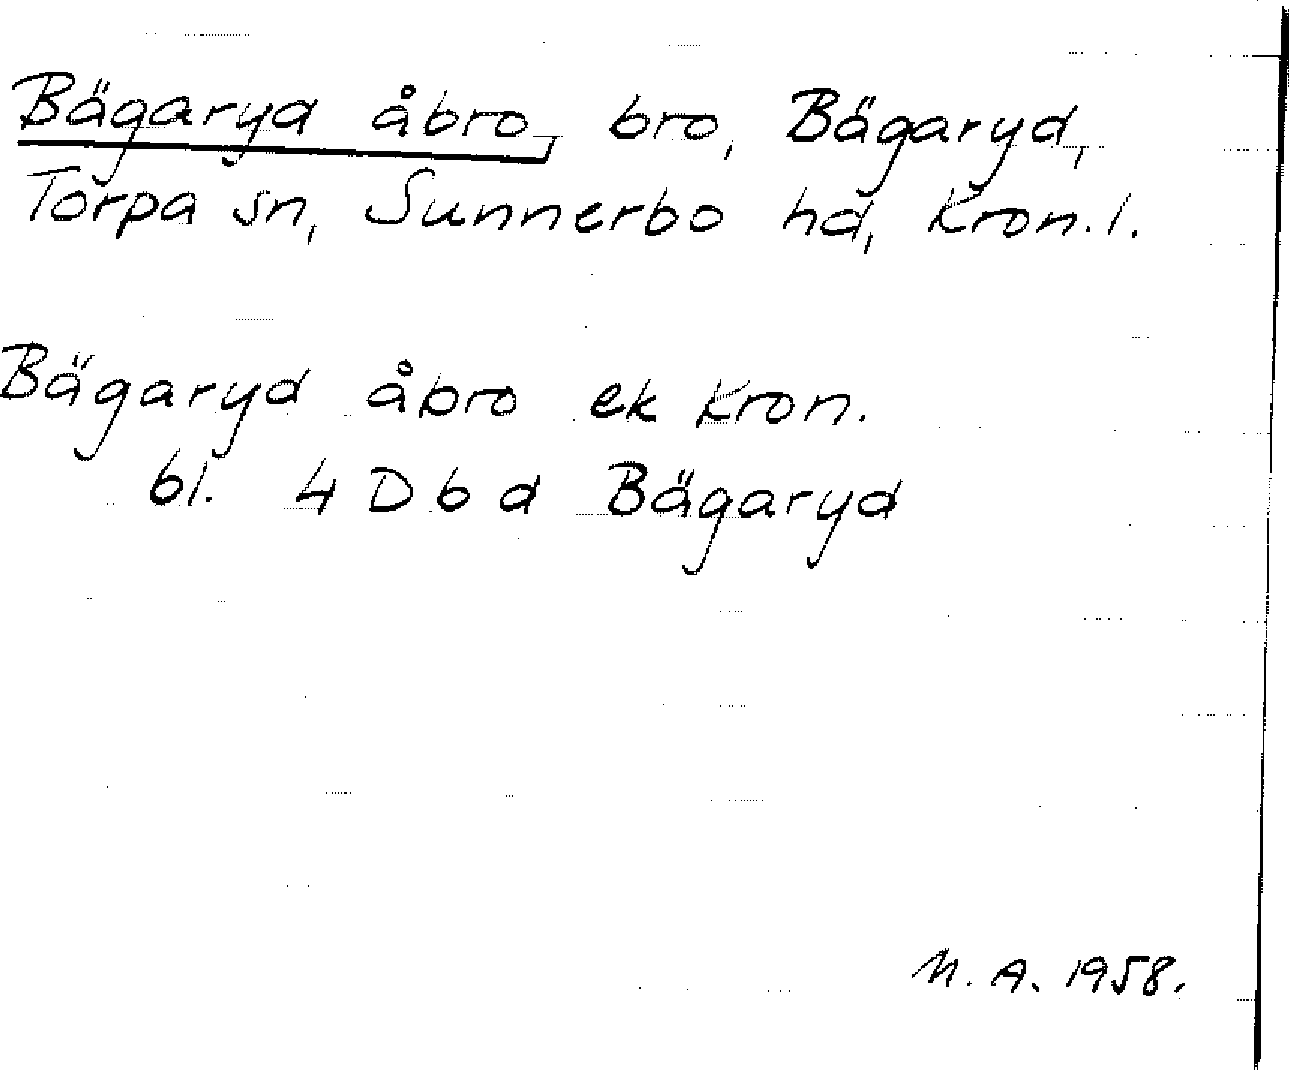 Bägaryd åbro, bro, Bägaryd,
Torpa sn, Sunnerbo hd, Kron. l.
Bägaryd åbro ek Kron.
bl. 4 D b d Bägaryd
N. A. 1958.